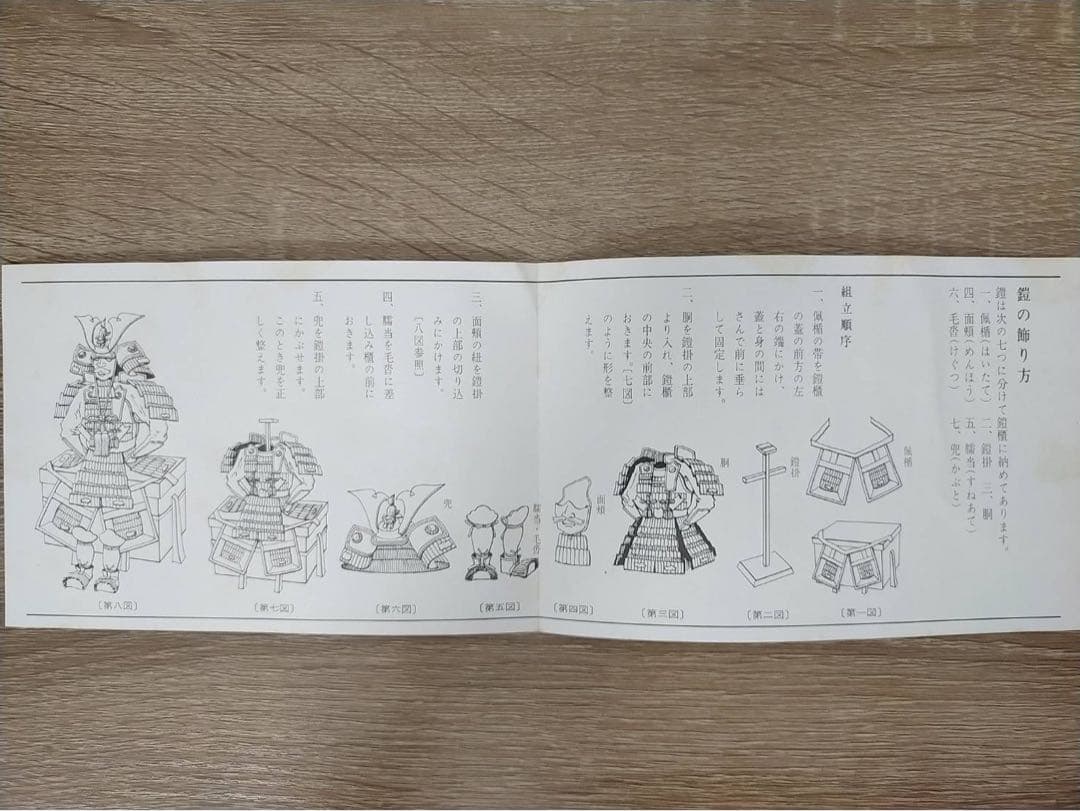 鎧の飾り方
鎧は次の七つに分けて鎧櫃に納めてあります。
一、佩楯(はいたて)　二、鎧掛　三、胴
四、面頬(めんほう)　五、臑当(すねあて)
六、毛沓(けぐつ)　七、兜(かぶと)
組立順序
一、佩楯の帯を鎧櫃
の蓋の前方の左
右の端にかけ、
蓋と身の間には
さんで前に垂ら
して固定します。
二、胴を鎧掛の上部
より入れ、鎧櫃
の中央の前部に
おきます。〔七図〕
のように形を整
えます。
三、面頬の紐を鎧掛
の上部の切り込
みにかけます。
〔八図参照〕
四、臑当を毛沓に差
し込み櫃の前に
おきます。
五、兜を鎧掛の上部
にかぶせます。
このとき兜を正
しく整えます。
佩楯
〔第一図〕
鎧掛
〔第二図〕
胴
〔第三図〕
面頬
〔第四図〕
臑当・毛沓
〔第五図〕
兜
〔第六図〕
〔第七図〕
〔第八図〕